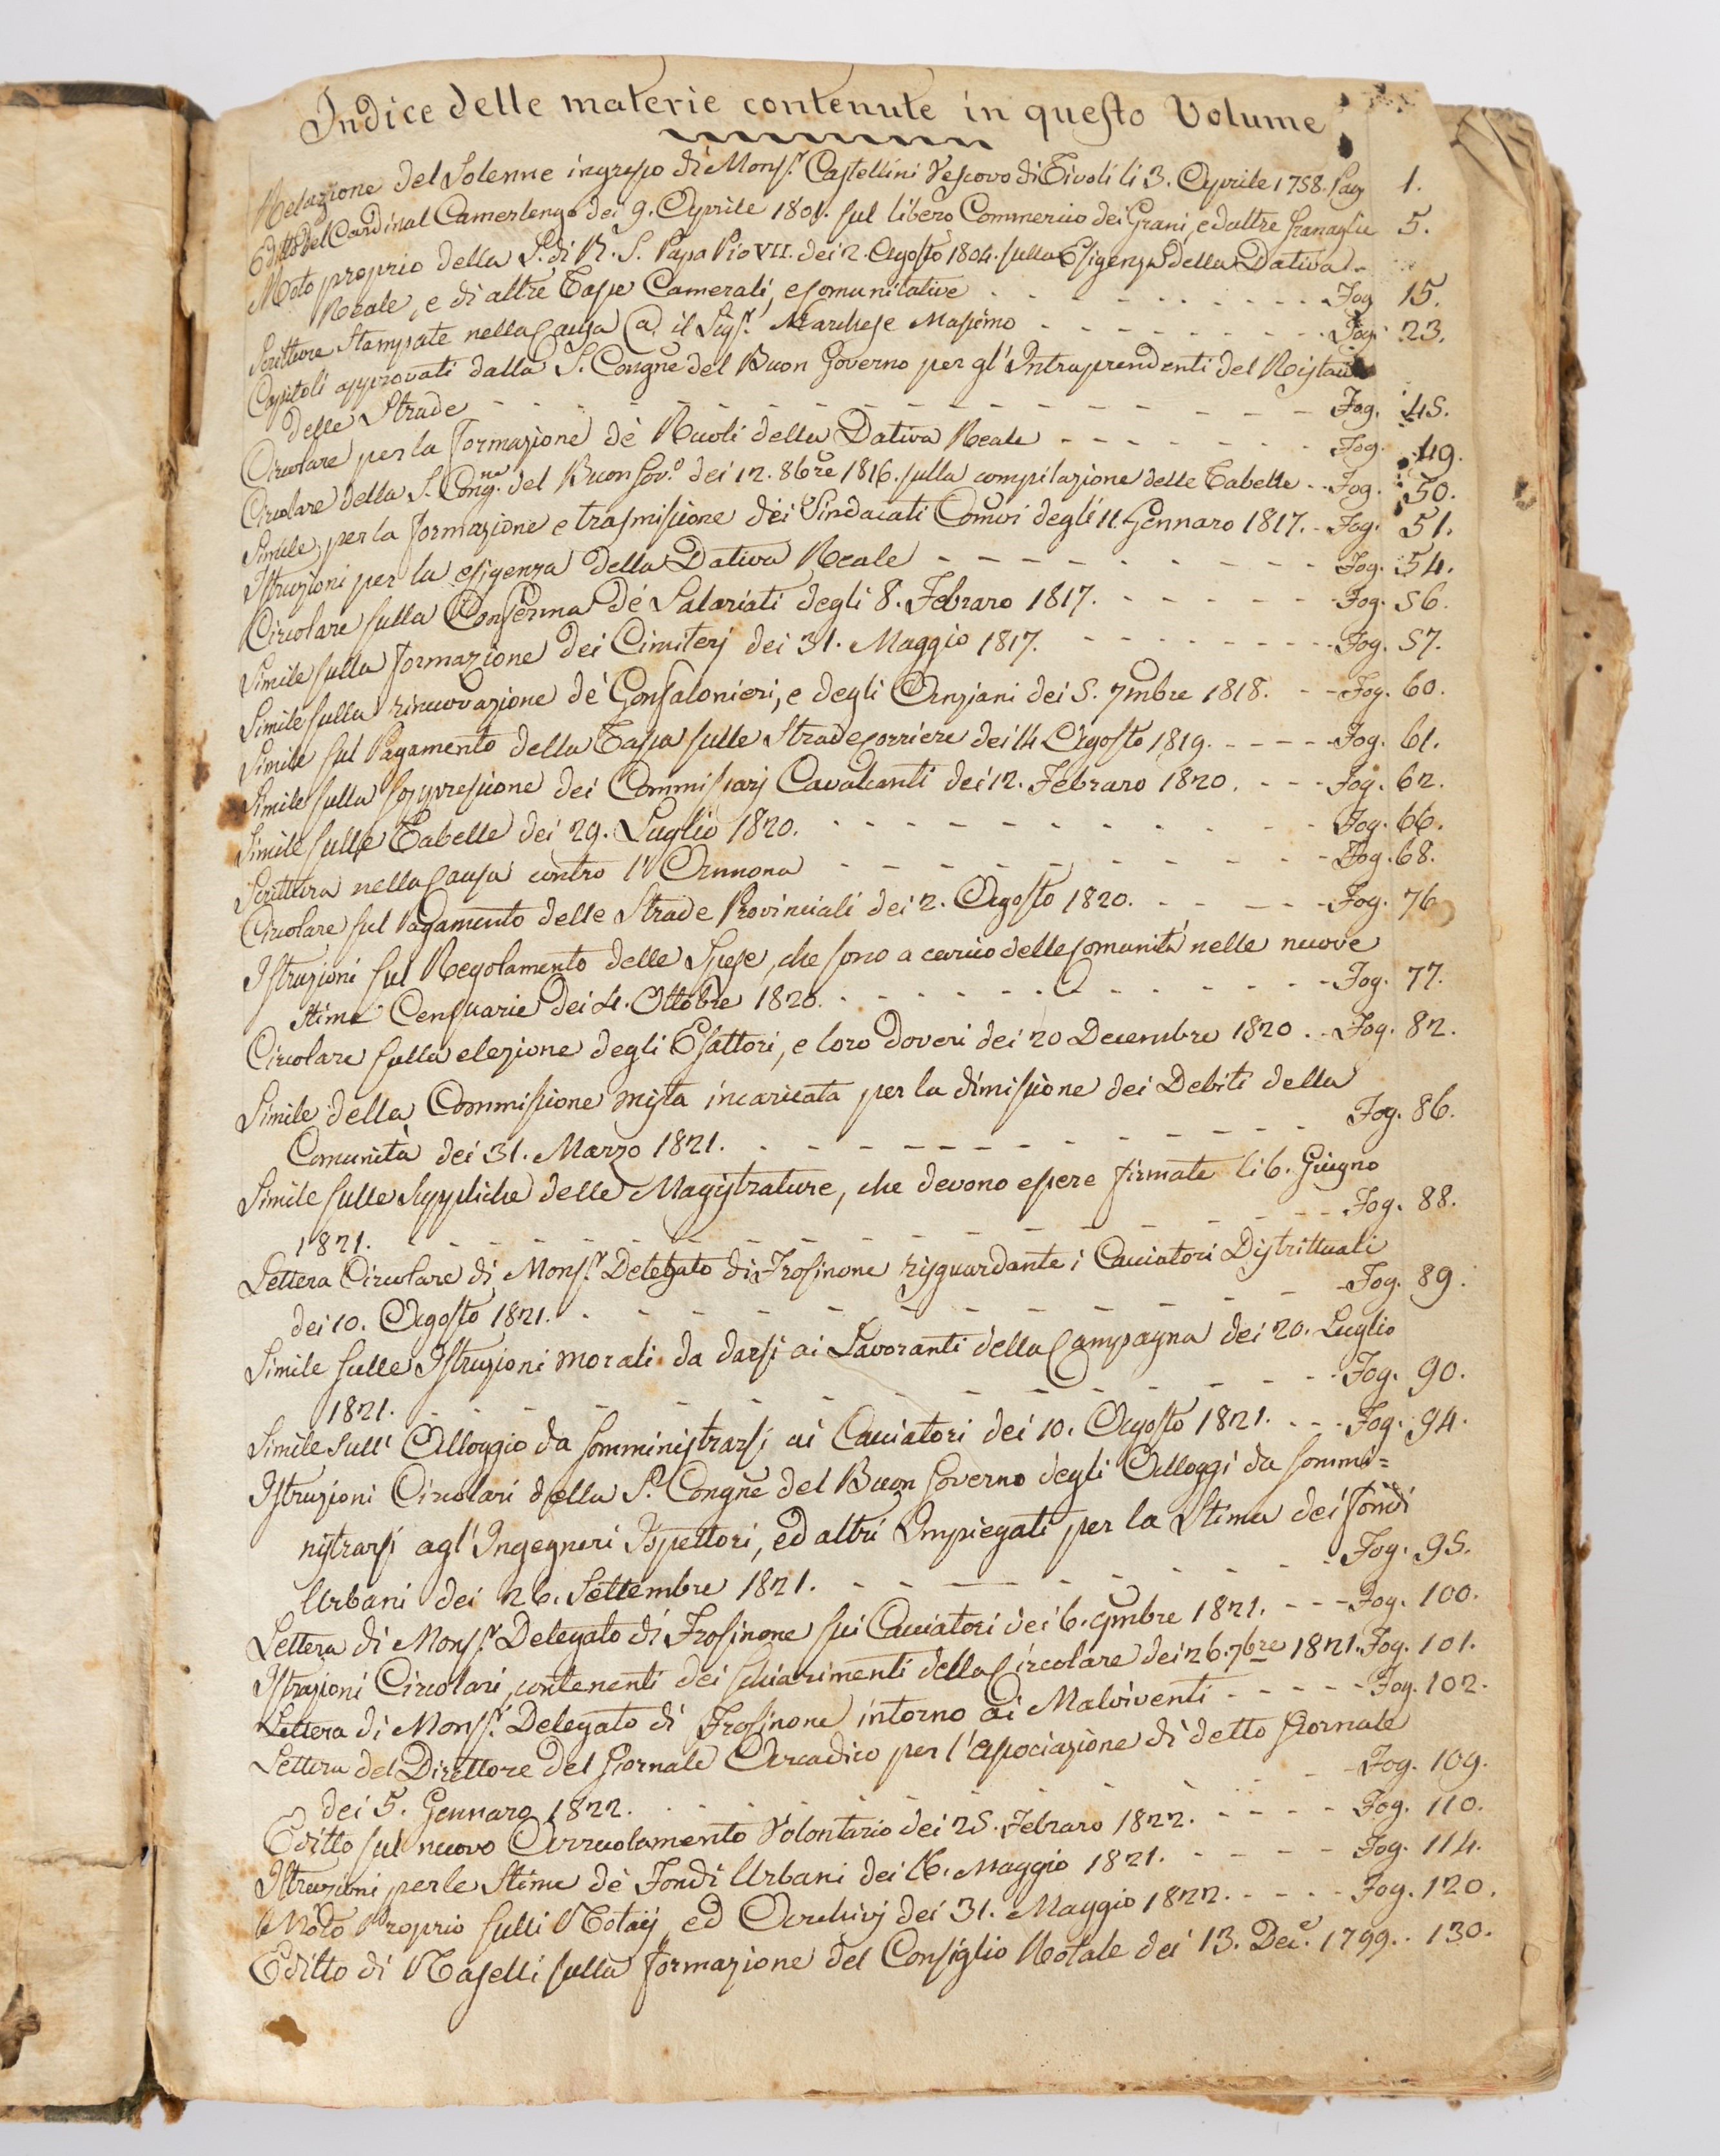 Indice delle materie contenute in questo Volume
Relazione del Solenne ingresso di Mons.r Castellini Vescovo di Tivoli li 3. Aprile 1758. Pag 1.
Editto del Cardinal Camerlengo dei 9. Aprile 1801. sul libero Commercio dei Grani, ed altre Granaglie 5.
Moto proprio della S. di N. S. Papa Pio VII. dei 2. Agosto 1804. sulla Esigenza della Dativa
Reale, e di altre Tasse Camerali, e comunitative - - - Fog 15.
Scritture Stampate nella Causa il Sig.r Marchese Massimo - - - Fog. 23.
Capitoli approvati dalla S. Congñe del Buon Governo per gl' Intraprendenti del Ristauro
delle Strade - - - Fog. 45.
Circolare per la formazione de' Ruoli della Dativa Reale - - - Fog. 49.
Circolare della S. Cong.ne del Buon Gov.o dei 12. 8bre 1816. sulla compilazione delle Tabelle - - Fog. 50.
Simile per la formazione e trasmissione dei Sindacati Comvi degli 11. Gennaro 1817. - Fog. 51.
Istruzioni per la esigenza della Dativa Reale - - - Fog. 54.
Circolare sulla Conferma de' Salariati degli 8. Febraro 1817. - - - Fog. 56.
Simile sulla formazione dei Cimiterj dei 31. Maggio 1817. - - - Fog. 57.
Simile sulla rinnovazione de' Gonfalonieri, e degli Anziani dei 5. 7mbre 1818. - - Fog. 60.
Simile sul Pagamento della Tassa sulle Strade corriere dei 14 Agosto 1819. - - - Fog. 61.
Simile sulla soppressione dei Commissarj Cavalcanti dei 12. Febraro 1820. - - - Fog. 62.
Simile sulle Tabelle dei 29. Luglio 1820. - - - Fog. 66.
Scrittura nella Causa contro l' Annona - - - Fog. 68.
Circolare sul Pagamento delle Strade Provinciali dei 2. Agosto 1820. - - - Fog. 76
Istruzioni sul Regolamento delle Spese, che sono a carico delle comunità nelle nuove
stime Censuarie dei 4. Ottobre 1820. - - - Fog. 77.
Circolare sulla elezione degli Esattori, e loro doveri dei 20 Decembre 1820 . - Fog. 82.
Simile della Commissione mista incaricata per la dimissione dei Debiti della
Comunità dei 31. Marzo 1821. - - - Fog. 86.
Simile sulle Suppliche delle Magistrature, che devono essere firmate li 6. Giugno
1821. - - - Fog. 88.
Lettera Circolare di Mons.r Delegato di Frosinone risguardante i Cacciatori Distrittuali
dei 10. Agosto 1821. - - - Fog. 89.
Simile sulle Istruzioni morali da darsi ai Lavoranti della Campagna dei 20. Luglio
1821. - - - Fog. 90.
Simile sull' Alloggio da somministrarsi ai Cacciatori dei 10. Agosto 1821. - - - Fog. 94.
Istruzioni Circolari della S. Congñe del Buon Governo degli Alloggi da sommi=
nistrarsi agl' Ingegneri Ispettori, ed altri Impiegati per la Stima dei fondi
Urbani dei 26. Settembre 1821. - - - Fog. 95.
Lettera di Mons.r Delegato di Frosinone sui Cacciatori dei 6. 9mbre 1821. - - - Fog. 100.
Istruzioni Circolari, contenenti dei schiarimenti della Circolare dei 26. 7bre 1821. Fog. 101.
Lettera di Mons.r Delegato di Frosinone intorno ai Malviventi - - - Fog. 102.
Lettera del Direttore del Giornale Arcadico per l' associazione di detto Giornale
dei 5. Gennaro 1822. - - - Fog. 109.
Editto sul nuovo Arruolamento Volontario dei 25. Febraro 1822. - - - Fog. 110.
Istruzioni per le Stime de' Fondi Urbani dei 16. Maggio 1821. - - - Fog. 114.
Moto Proprio sulli Notaij, ed Archivj dei 31. Maggio 1822. - - - Fog. 120.
Editto di Naselli sulla formazione del Consiglio Notale dei 13. Dec.e 1799. . 130.